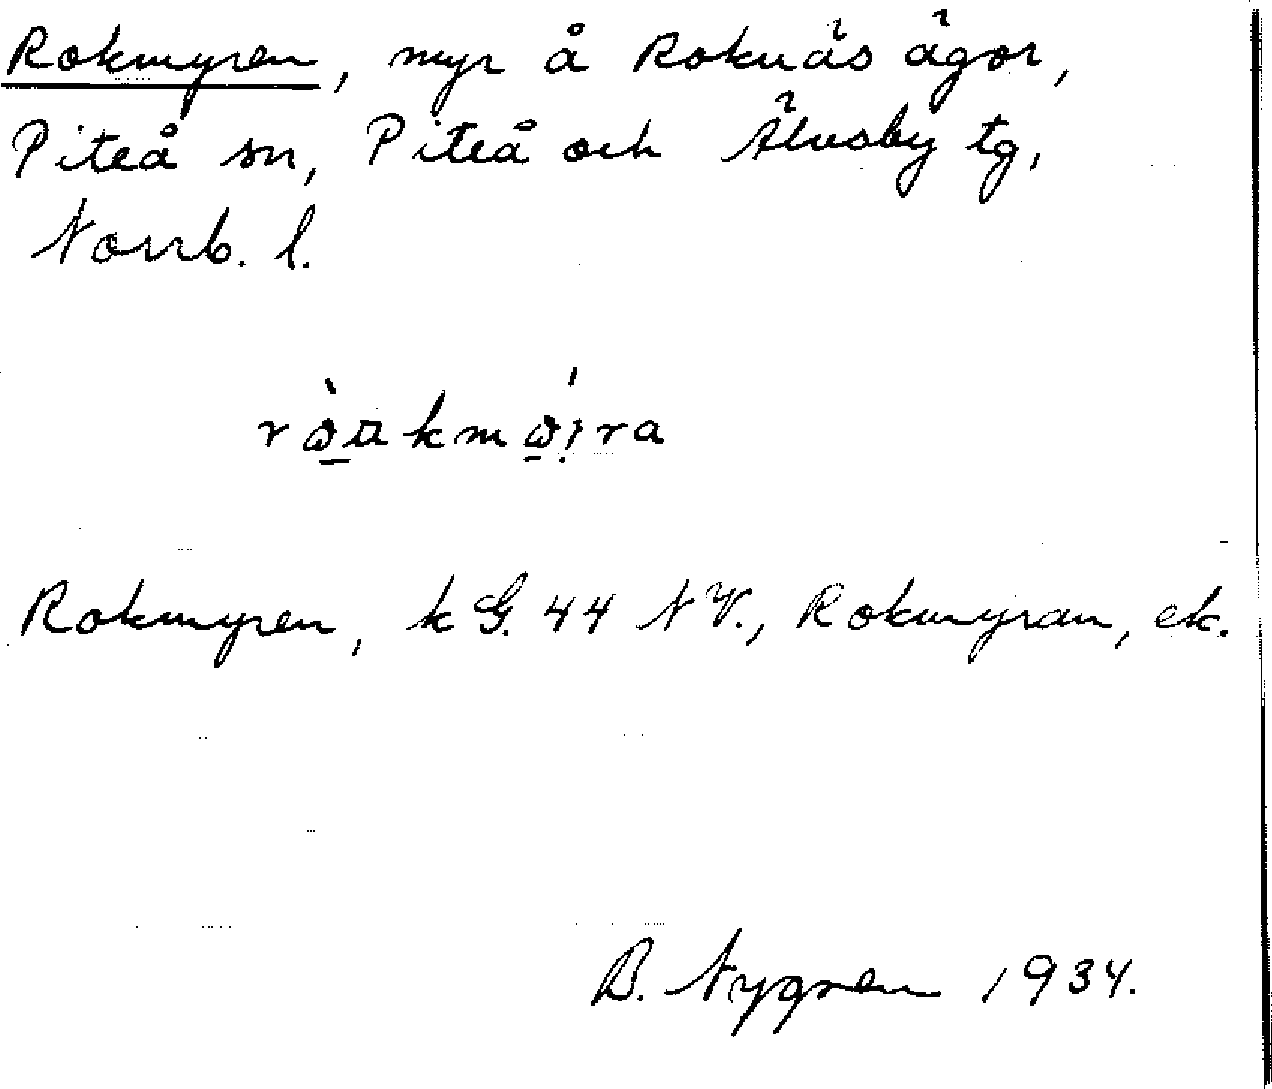 Rokmyren, myr å Roknäs ägor,
Piteå sn, Piteå och Älvsby tg,
Norrb. l.
Rokmyren, k G. 44 NV., Rokmyran, ek.
B. Nygren 1934.